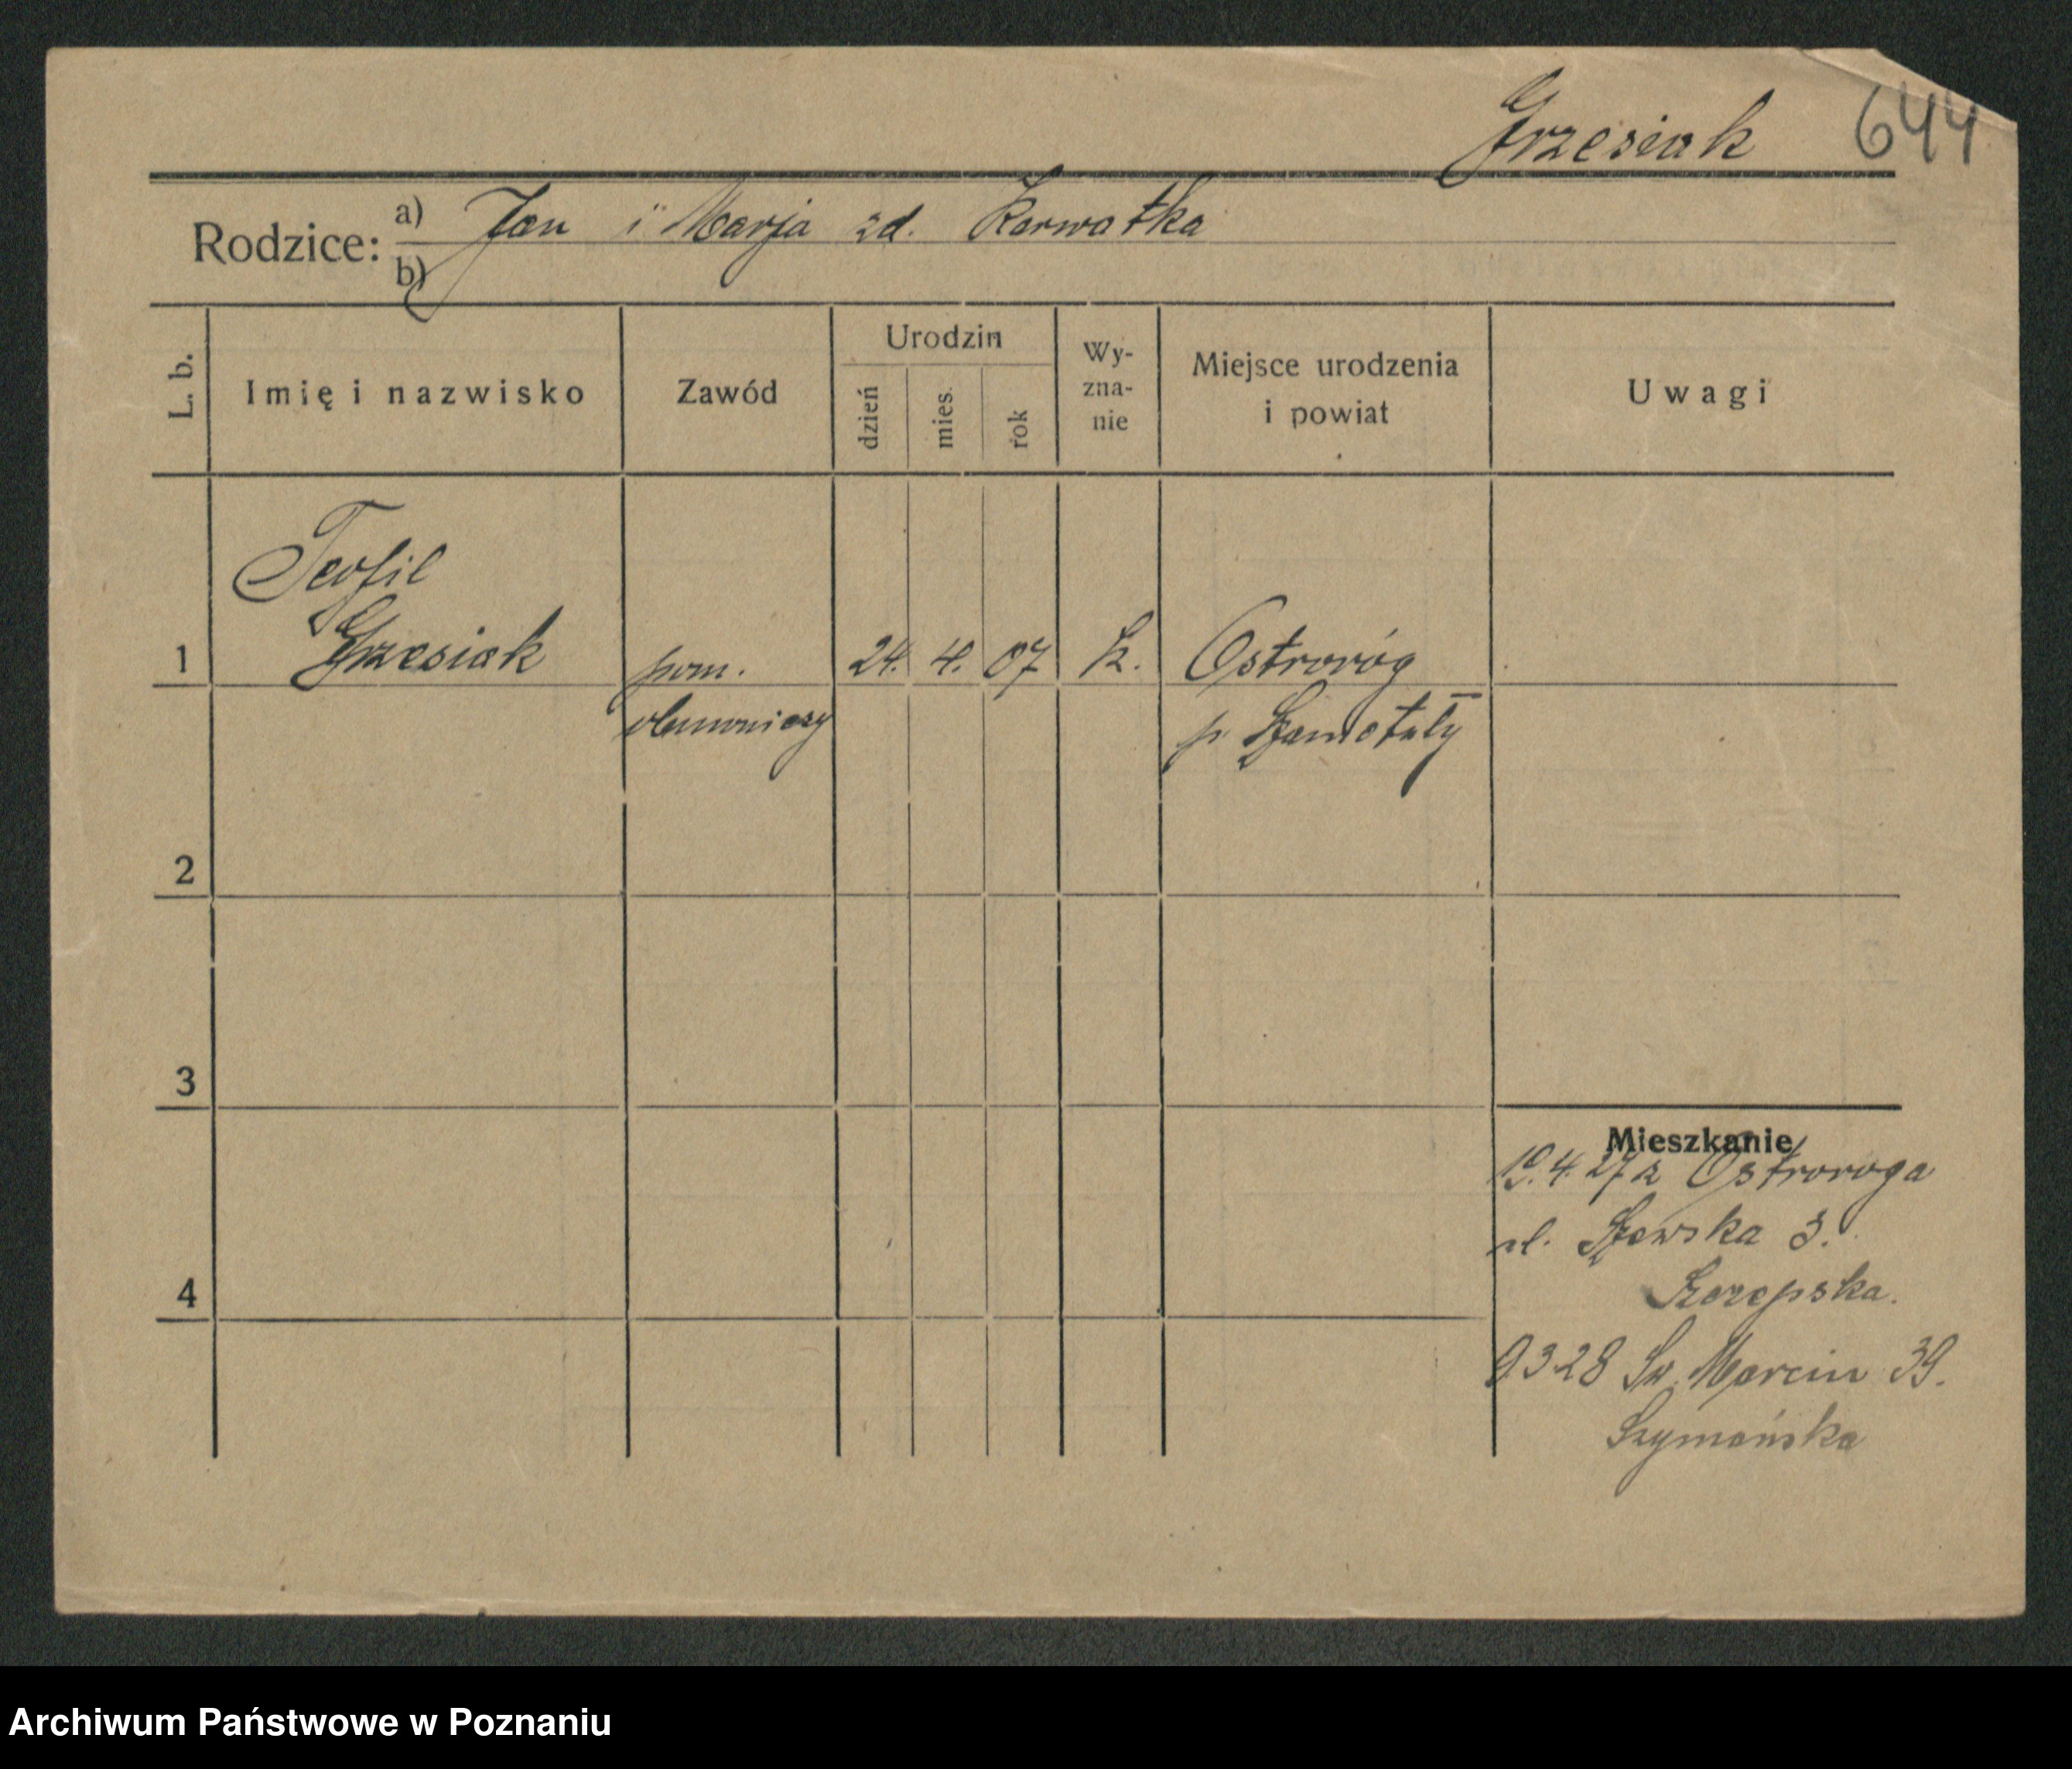 Grzesiak 644
Rodzice: a) Jan i Marja zd. Karwatka
b)
L. b.
Imię i nazwisko
Zawód
Urodzin
dzień
mies.
rok
Wy-
zna-
nie
Miejsce urodzenia
i powiat
Uwagi
Teofil
1 Grzesiak pom. 24. 4. 07 k. Ostroróg
p. Szamotuły
2
3
4
Mieszkanie
19.4.27 z Ostroroga
ul. Szewska 3.
9328 Św. Marcin 39.
Szymańska
Archiwum Państwowe w Poznaniu